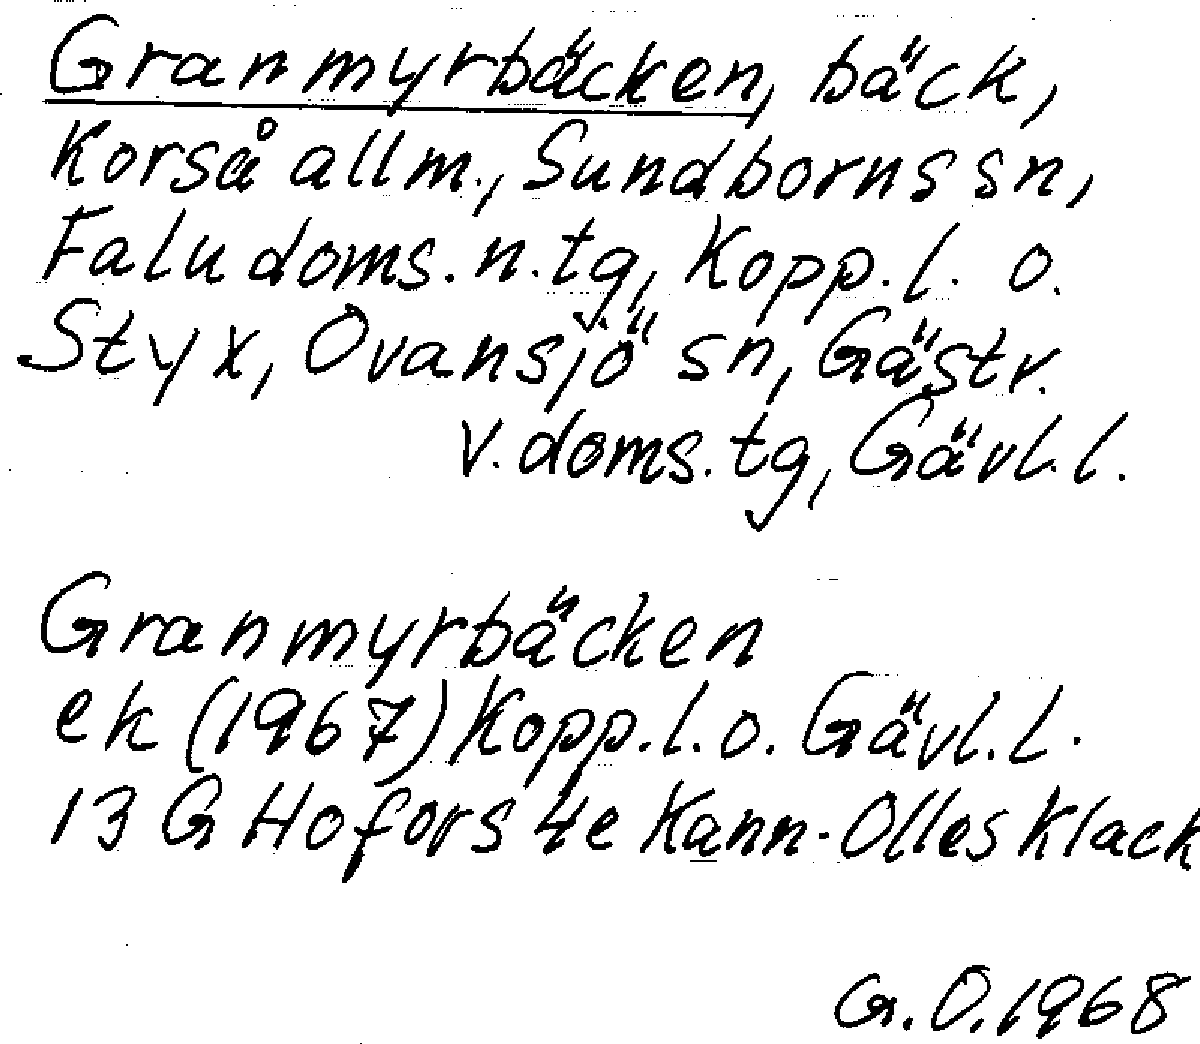 Granmyrbäcken, bäck,
Korså allm., Sundborns sn,
Falu doms. n. tg, Kopp. l. o.
Styx, Ovansjö sn, Gästr.
V. doms. tg, Gävl. l.
Granmyrbäcken
ek (1967) Kopp. l. o. Gävl. l.
13 G Hofors 4e Kann-Olles Klack
G. O. 1968